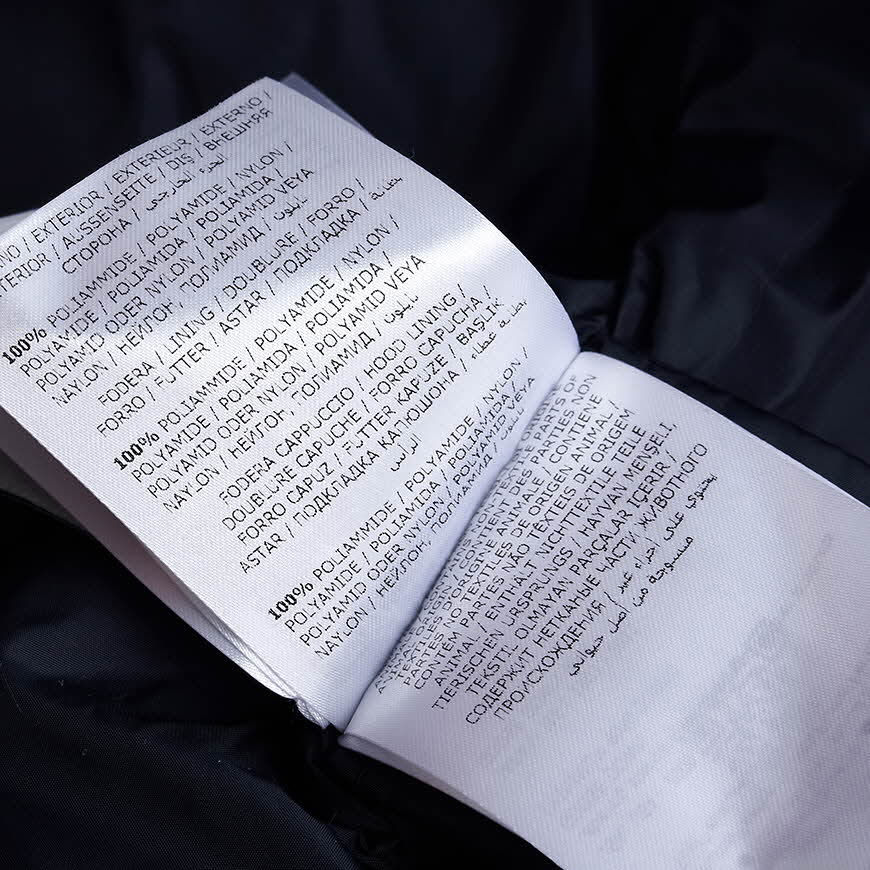 / EXTERIOR / EXTERIEUR / EXTERNO /
/ AUSSENSEITE / DIŞ / ВНЕШНЯЯ
СТОРОНА / الجزء الخارجي
100% POLIAMMIDE / POLYAMIDE / NYLON /
POLYAMIDE / POLIAMIDA / POLIAMIDA /
POLYAMID ODER NYLON / POLYAMID VEYA
NAYLON / НЕЙЛОН, ПОЛИАМИД / نايلون
FODERA / LINING / DOUBLURE / FORRO /
FORRO / FUTTER / ASTAR / ПОДКЛАДКА / بطانة
100% POLIAMMIDE / POLYAMIDE / NYLON /
POLYAMIDE / POLIAMIDA / POLIAMIDA /
POLYAMID ODER NYLON / POLYAMID VEYA
NAYLON / НЕЙЛОН, ПОЛИАМИД / نايلون
FODERA CAPPUCCIO / HOOD LINING /
DOUBLURE CAPUCHE / FORRO CAPUCHA /
FORRO CAPUZ / FUTTER KAPUZE / BAŞLIK
ASTAR / ПОДКЛАДКА КАПЮШОНА / بطانة غطاء
الرأس
100% POLIAMMIDE / POLYAMIDE / NYLON /
POLYAMIDE / POLIAMIDA / POLIAMIDA /
POLYAMID ODER NYLON / POLYAMID VEYA
NAYLON / НЕЙЛОН, ПОЛИАМИД / نايلون
PARTS OF
PARTIES NON
TEXTILES D'ORIGINE ANIMALE / CONTIENE
PARTES NO TEXTILES DE ORIGEN ANIMAL /
CONTÉM PARTES NÃO TÊXTEIS DE ORIGEM
ANIMAL / ENTHÄLT NICHTTEXTILE TEILE
TIERISCHEN URSPRUNGS / HAYVAN MENŞELİ,
TEKSTİL OLMAYAN PARÇALAR İÇERİR /
СОДЕРЖИТ НЕТКАНЫЕ ЧАСТИ ЖИВОТНОГО
ПРОИСХОЖДЕНИЯ / يحتوي على أجزاء غير
منسوجة من أصل حيواني